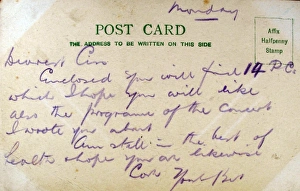 Monday
POST CARD
THE ADDRESS TO BE WRITTEN ON THIS SIDE
Affix
Halfpenny
Stamp
Dearest
Enclosed you will find 14 P.C.
which I hope you will like
also the programe of the concert
I wrote you about
Am still in the best of
health & hope you are likewise
Your